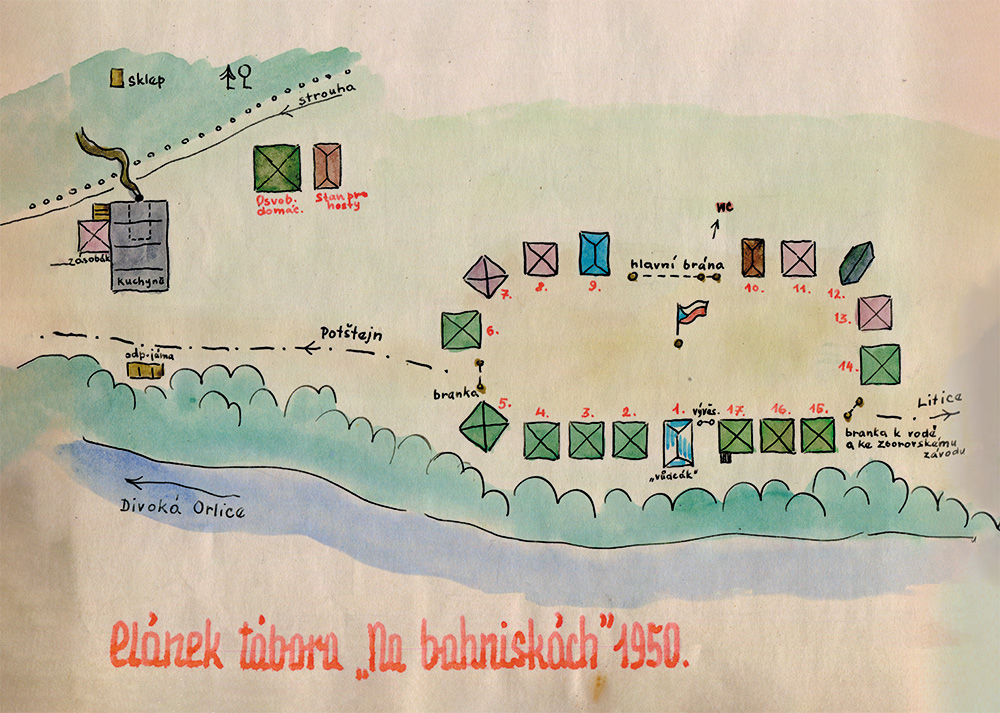 sklep
strouha
Osvob.
domác.
Stan pro
hosty
zásobák
Kuchyně
WC
hlavní brána
7.
8.
9.
10.
11.
12.
13.
6.
14.
Potštejn
odp. jáma
branka
5.
4.
3.
2.
1.
vývěs.
17.
16.
15.
Litice
branka k vodě
a ke Zborovskému
závodu
„vůdcák“
Divoká Orlice
Plánek tábora „Na bahniskách“ 1950.